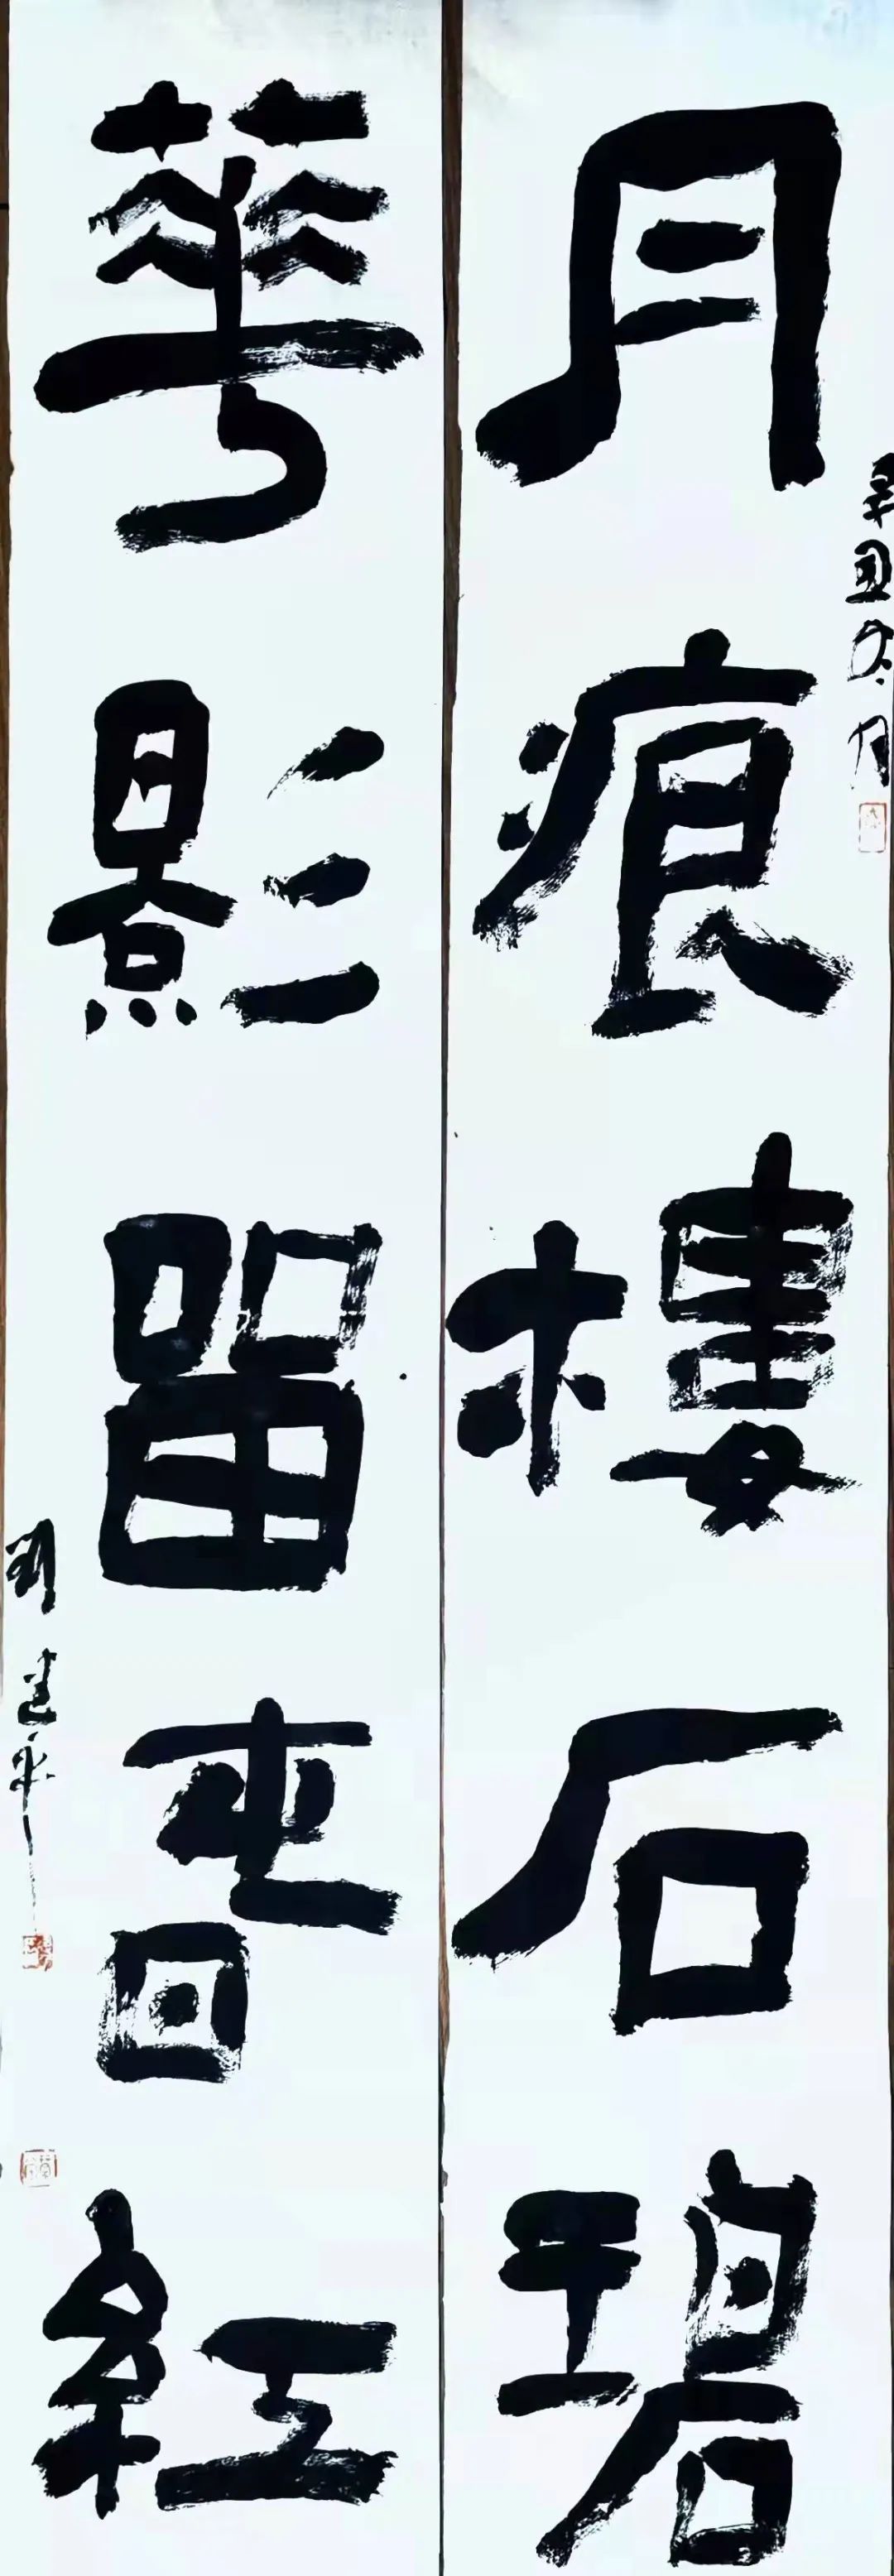 月痕樓石碧
辛丑冬月
華影留春紅
刘建平